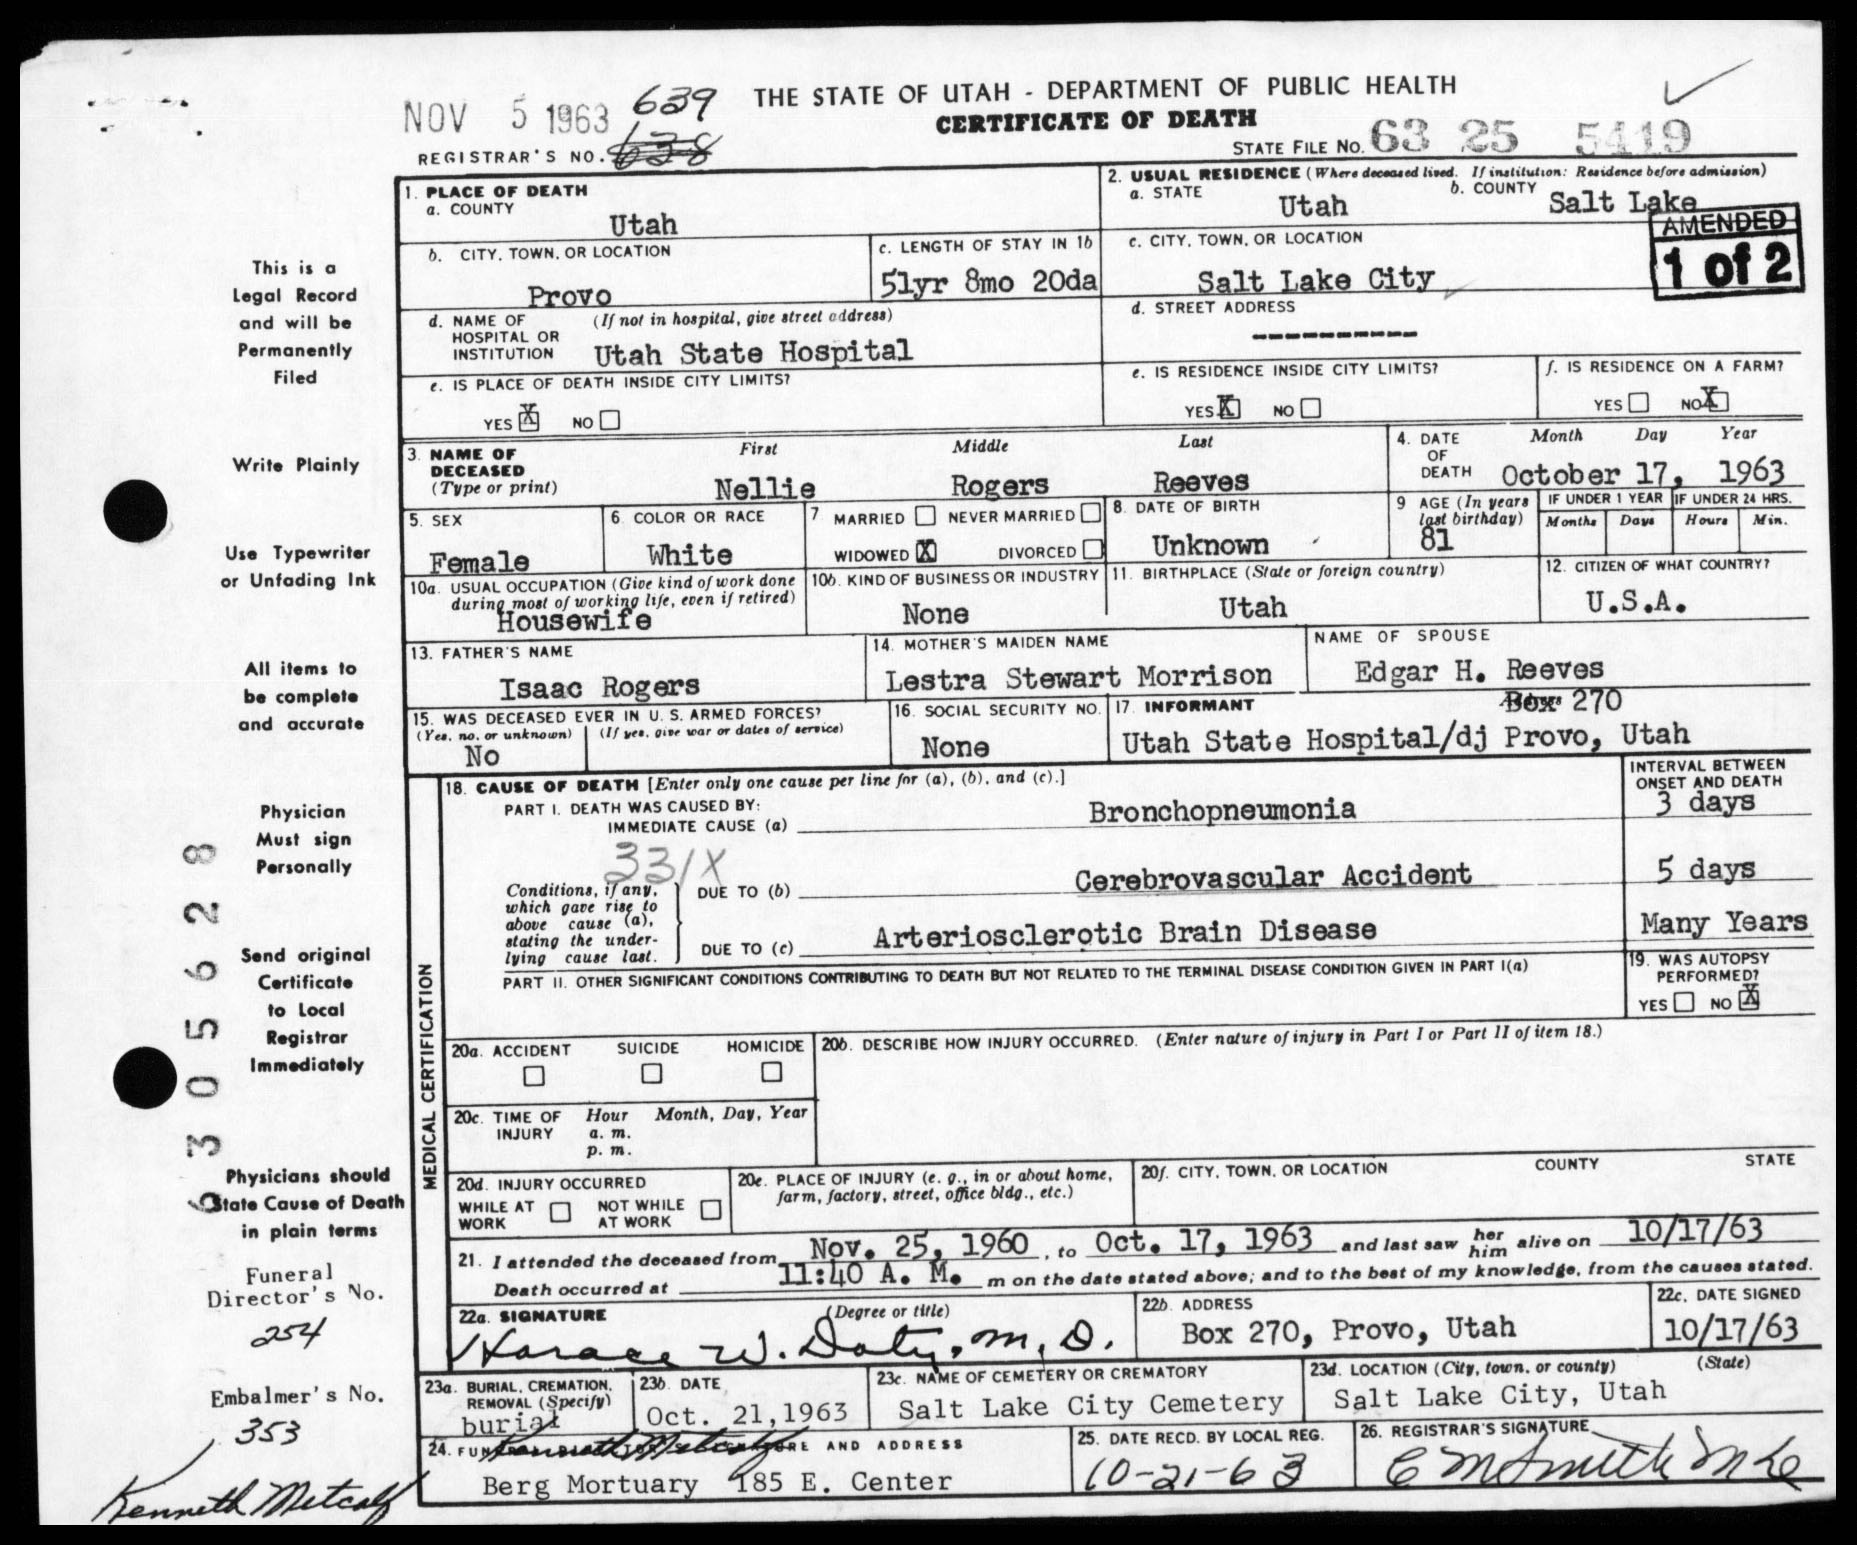 NOV 5 1963
639
THE STATE OF UTAH - DEPARTMENT OF PUBLIC HEALTH
CERTIFICATE OF DEATH
REGISTRAR'S NO. 638
STATE FILE NO. 63 25 5419
AMENDED
1 of 2
1. PLACE OF DEATH
a. COUNTY
Utah
2. USUAL RESIDENCE (Where deceased lived. If institution: Residence before admission)
a. STATE Utah
b. COUNTY Salt Lake
b. CITY, TOWN, OR LOCATION
Provo
c. LENGTH OF STAY IN 1b
51yr 8mo 20da
c. CITY, TOWN, OR LOCATION
Salt Lake City
d. NAME OF (If not in hospital, give street address)
HOSPITAL OR
INSTITUTION Utah State Hospital
d. STREET ADDRESS
------------
e. IS PLACE OF DEATH INSIDE CITY LIMITS?
YES X NO
e. IS RESIDENCE INSIDE CITY LIMITS?
YES X NO
f. IS RESIDENCE ON A FARM?
YES NO X
3. NAME OF
DECEASED
(Type or print)
First Middle Last
Nellie Rogers Reeves
4. DATE
OF
DEATH
Month Day Year
October 17, 1963
5. SEX
Female
6. COLOR OR RACE
White
7 MARRIED NEVER MARRIED
WIDOWED X DIVORCED
8. DATE OF BIRTH
Unknown
9 AGE (In years
last birthday)
81
IF UNDER 1 YEAR
Months Days
IF UNDER 24 HRS.
Hours Min.
10a. USUAL OCCUPATION (Give kind of work done
during most of working life, even if retired)
Housewife
10b. KIND OF BUSINESS OR INDUSTRY
None
11. BIRTHPLACE (State or foreign country)
Utah
12. CITIZEN OF WHAT COUNTRY?
U.S.A.
13. FATHER'S NAME
Isaac Rogers
14. MOTHER'S MAIDEN NAME
Lestra Stewart Morrison
NAME OF SPOUSE
Edgar H. Reeves
15. WAS DECEASED EVER IN U. S. ARMED FORCES?
(Yes, no, or unknown) (If yes, give war or dates of service)
No
16. SOCIAL SECURITY NO.
None
17. INFORMANT
Box 270
Utah State Hospital/dj Provo, Utah
MEDICAL CERTIFICATION
18. CAUSE OF DEATH [Enter only one cause per line for (a), (b), and (c).]
INTERVAL BETWEEN
ONSET AND DEATH
PART I. DEATH WAS CAUSED BY:
IMMEDIATE CAUSE (a) Bronchopneumonia 3 days
331X
Conditions, if any,
which gave rise to
above cause (a),
stating the under-
lying cause last.
DUE TO (b) Cerebrovascular Accident 5 days
DUE TO (c) Arteriosclerotic Brain Disease Many Years
PART II. OTHER SIGNIFICANT CONDITIONS CONTRIBUTING TO DEATH BUT NOT RELATED TO THE TERMINAL DISEASE CONDITION GIVEN IN PART I(a)
19. WAS AUTOPSY
PERFORMED?
YES NO X
20a. ACCIDENT SUICIDE HOMICIDE
20b. DESCRIBE HOW INJURY OCCURRED. (Enter nature of injury in Part I or Part II of item 18.)
20c. TIME OF
INJURY
Hour Month, Day, Year
a. m.
p. m.
20d. INJURY OCCURRED
WHILE AT
WORK
NOT WHILE
AT WORK
20e. PLACE OF INJURY (e. g., in or about home,
farm, factory, street, office bldg., etc.)
20f. CITY, TOWN, OR LOCATION COUNTY STATE
21. I attended the deceased from Nov. 25, 1960, to Oct. 17, 1963 and last saw her him alive on 10/17/63
Death occurred at 11:40 A. M. m on the date stated above; and to the best of my knowledge, from the causes stated.
22a. SIGNATURE (Degree or title)
Horace W. Doty, M.D.
22b. ADDRESS
Box 270, Provo, Utah
22c. DATE SIGNED
10/17/63
23a. BURIAL, CREMATION,
REMOVAL (Specify)
burial
23b. DATE
Oct. 21,1963
23c. NAME OF CEMETERY OR CREMATORY
Salt Lake City Cemetery
23d. LOCATION (City, town, or county) (State)
Salt Lake City, Utah
24. AND ADDRESS
Kenneth Metcalf
Berg Mortuary 185 E. Center
25. DATE RECD. BY LOCAL REG.
10-21-63
26. REGISTRAR'S SIGNATURE
This is a
Legal Record
and will be
Permanently
Filed
Write Plainly
Use Typewriter
or Unfading Ink
All items to
be complete
and accurate
Physician
Must sign
Personally
Send original
Certificate
to Local
Registrar
Immediately
Physicians should
State Cause of Death
in plain terms
6305628
Funeral
Director's No.
254
Embalmer's No.
353
Kenneth Metcalf